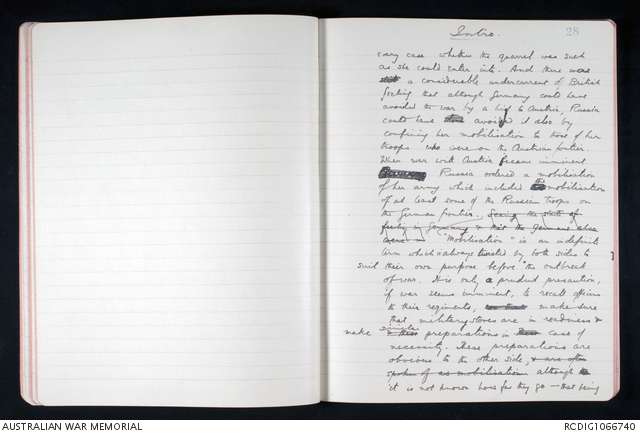 Intro.
28
any case whether the quarrel was such
as she could enter into. And there was
a considerable undercurrent of British
feeling that although Germany could have
avoided the war by a hint to Austria, Russia
could have avoided it also by
confining her mobilisation to those of her
troops who were on the Austrian frontier.
When war with Austria became imminent
Russia ordered a mobilisation
of her army which included the mobilisation
of at least some of the Russian troops on
the German frontier. Seeing the state of
feeling in Germany & that the Germans
"Mobilisation" is an indefinite
term which is always twisted by both sides to
suit their own purpose before the outbreak
of war. It is only a prudent precaution,
if war seems imminent, to recall officers
to their regiments, make sure
that military stores are in readiness &
make similar preparations in case of
necessity. These preparations are
obvious to the other side, & are often
spoken of as mobilisation although
it is not known how far they go - that being
AUSTRALIAN WAR MEMORIAL
RCDIG1066740